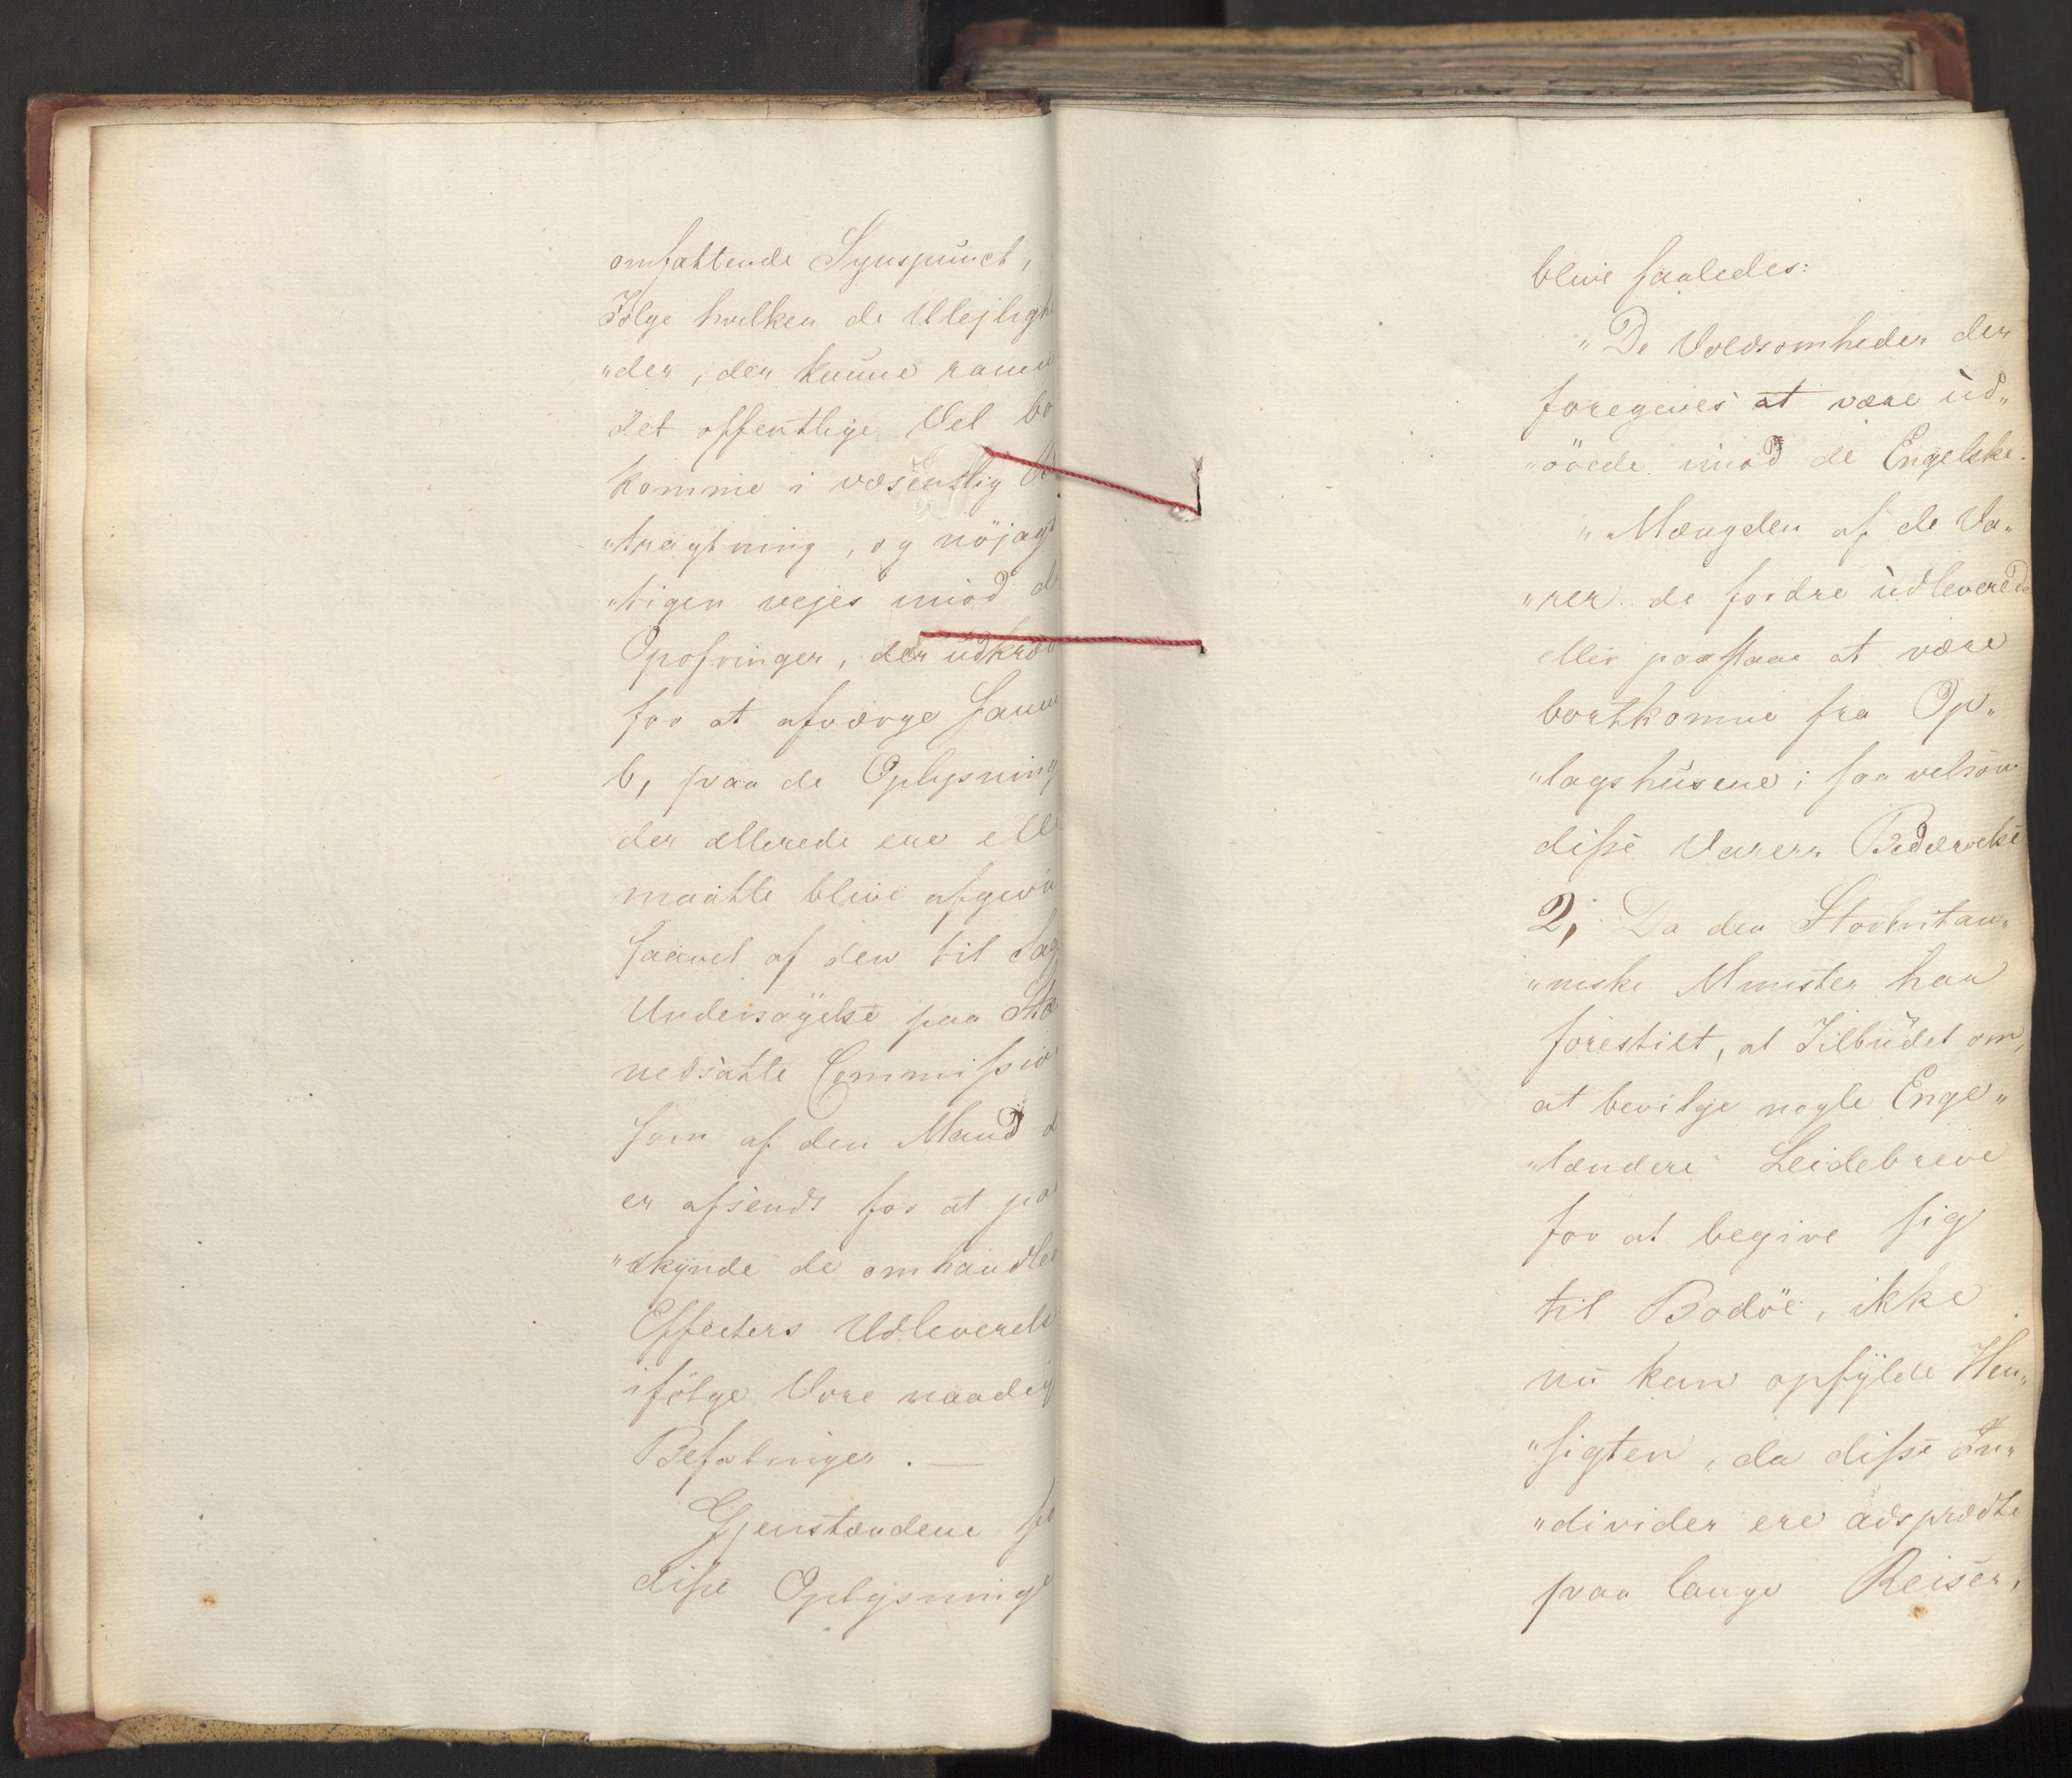 omfattende Synspunct,
Fölge hvilken de Ulejligh
"der, der kunne ramm
det offentlige Vel bö
komme i væsentlig B
"tragtning, og nöjag
"tigen vejes imod d
Opofringer, der udkræv
for at afværge samm
b, paa de Oplysning
der allerede ere elle
maatte blive afgivn
saavel af den til Sag
Undersögelse paa Stæ
nedsatte Commission
som af den Mand d
er afsendt for at paa
"skynde de omhandle
Effecters Udleverels
ifölge Vore naadig
Befalinger. —
Gjenstandene fo
disse Oplysninge
blive saaledes:
"De Voldsomheder der
foregives at være ud"
"övede imod de Engelske.
"Mængden af de Va"
"rer de fordre udleverede
eller paastaae at være
bortkomne fra Op"
"lagshusene; saavelsom
disse Varers Bedærvelse
2, Da den Storbritan"
"niske Minister har
forestilt, at Tilbudet om,
at bevilge nogle Enge"
"lændere Leidebreve
for at begive sig
til Bodöe, ikke
nu kan opfylde Hen"
"sigten, da disse In"
"divider ere adspredte
paa lange Reiser,